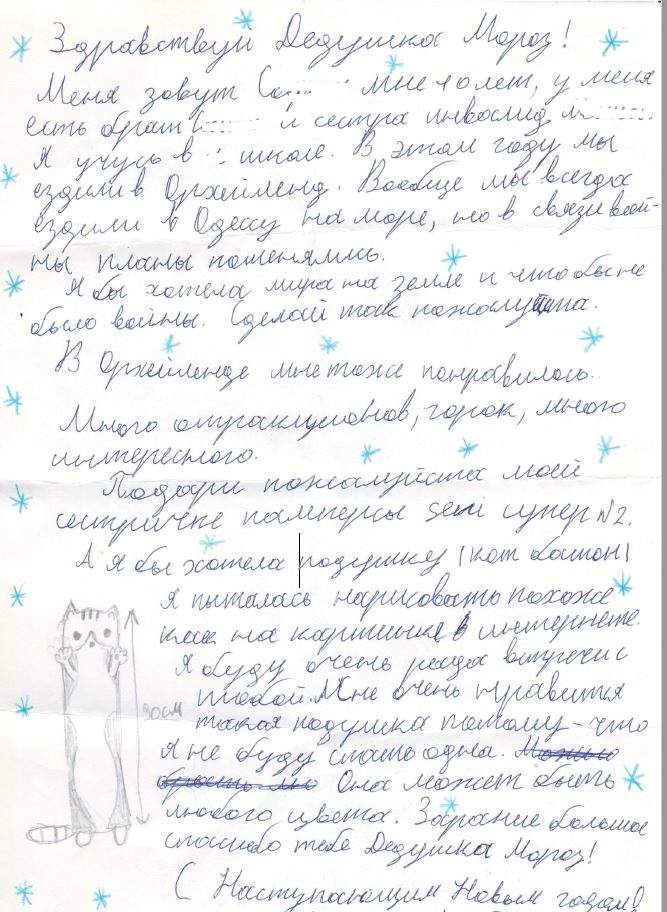 Здравствуй Дедушка Мороз!
Меня зовут С Мне 10 лет, у меня
есть брат и сестра инвалид
Я учусь в школе. В этом году мы
ездили в Орхейленд. Вообще мы всегда
ездили в Одессу на море, но в связи вой-
ны планы поменялись.
Я бы хотела мира на земле и что бы не
было войны. Сделай так пожалуйшта.
В Орхейленде мне тоже понравилось.
Много атракционов, горок, много
интересного.
Подари пожалуйста моей
сестричке памперсы seni супер N2.
А я бы хотела подушку (кот батон)
я пыталась нарисовать похоже
как на картинке в интернете.
Я буду очень рада встречи с
тобой. Мне очень нравится
такая подушка потому-что
я не буду спать одна.
Она может быть
любого цвета. Зарание большое
спасибо тебе Дедушка Мороз!
С Наступающим Новым годом!